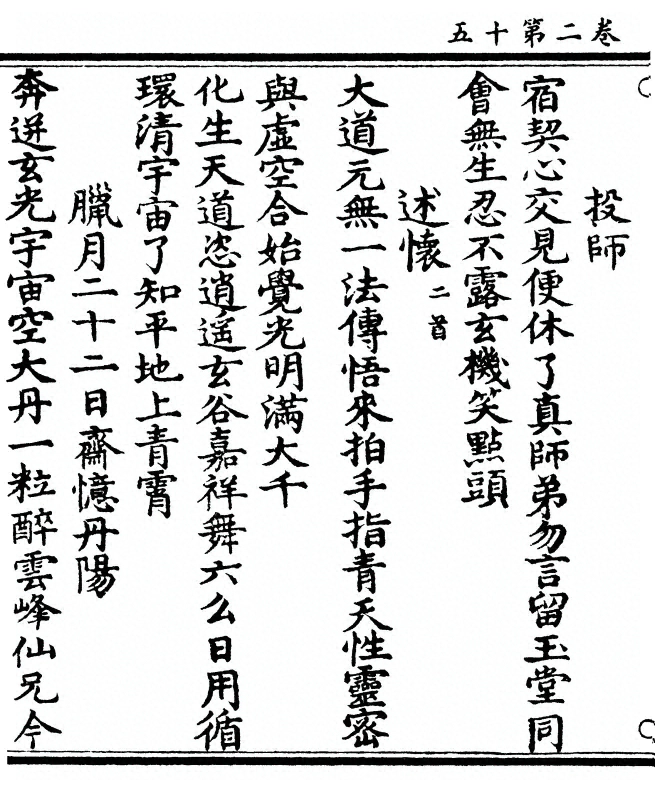 卷二第十五
投師
宿契心交見便休了真師弟勿言留玉堂同
會無生忍不露玄機笑點頭
述懷二首
大道元無一法傳悟來拍手指青天性靈密
與虛空合始覺光明滿大千
化生天道恣逍遥玄谷嘉祥舞六么日用循
環清宇宙了知平地上青霄
臘月二十二日齋憶丹陽
奔迸玄光宇宙空大丹一粒醉雲峰仙兄今